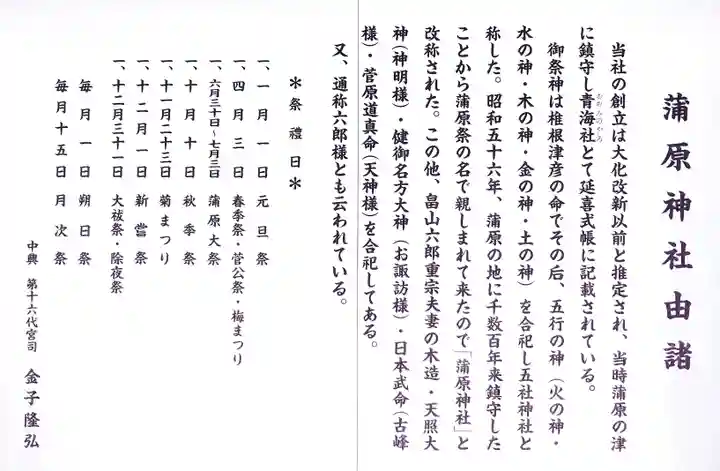 蒲原神社由諸
当社の創立は大化改新以前と推定され、当時蒲原の津
に鎮守し青海社とて延喜式帳に記載されている。
御祭神は椎根津彦の命でその后、五行の神（火の神・
水の神・木の神・金の神・土の神）を合祀し五社神社と
称した。昭和五十六年、蒲原の地に千数百年来鎮守した
ことから蒲原祭の名で親しまれて来たので「蒲原神社」と
改称された。この他、畠山六郎重宗夫妻の木造・天照大
神（神明様）・健御名方大神（お諏訪様）・日本武命（古峰
様）・菅原道真命（天神様）を合祀してある。
又、通称六郎様とも云われている。
＊祭禮日＊
一、一月一日 元旦祭
一、四月三日 春季祭・菅公祭・梅まつり
一、六月三十日～七月三日 蒲原大祭
一、十月十日 秋季祭
一、十一月二十三日 菊まつり
一、十二月一日 新嘗祭
一、十二月三十一日 大祓祭・除夜祭
毎月一日 朔日祭
毎月十五日 月次祭
中興 第十六代宮司 金子隆弘